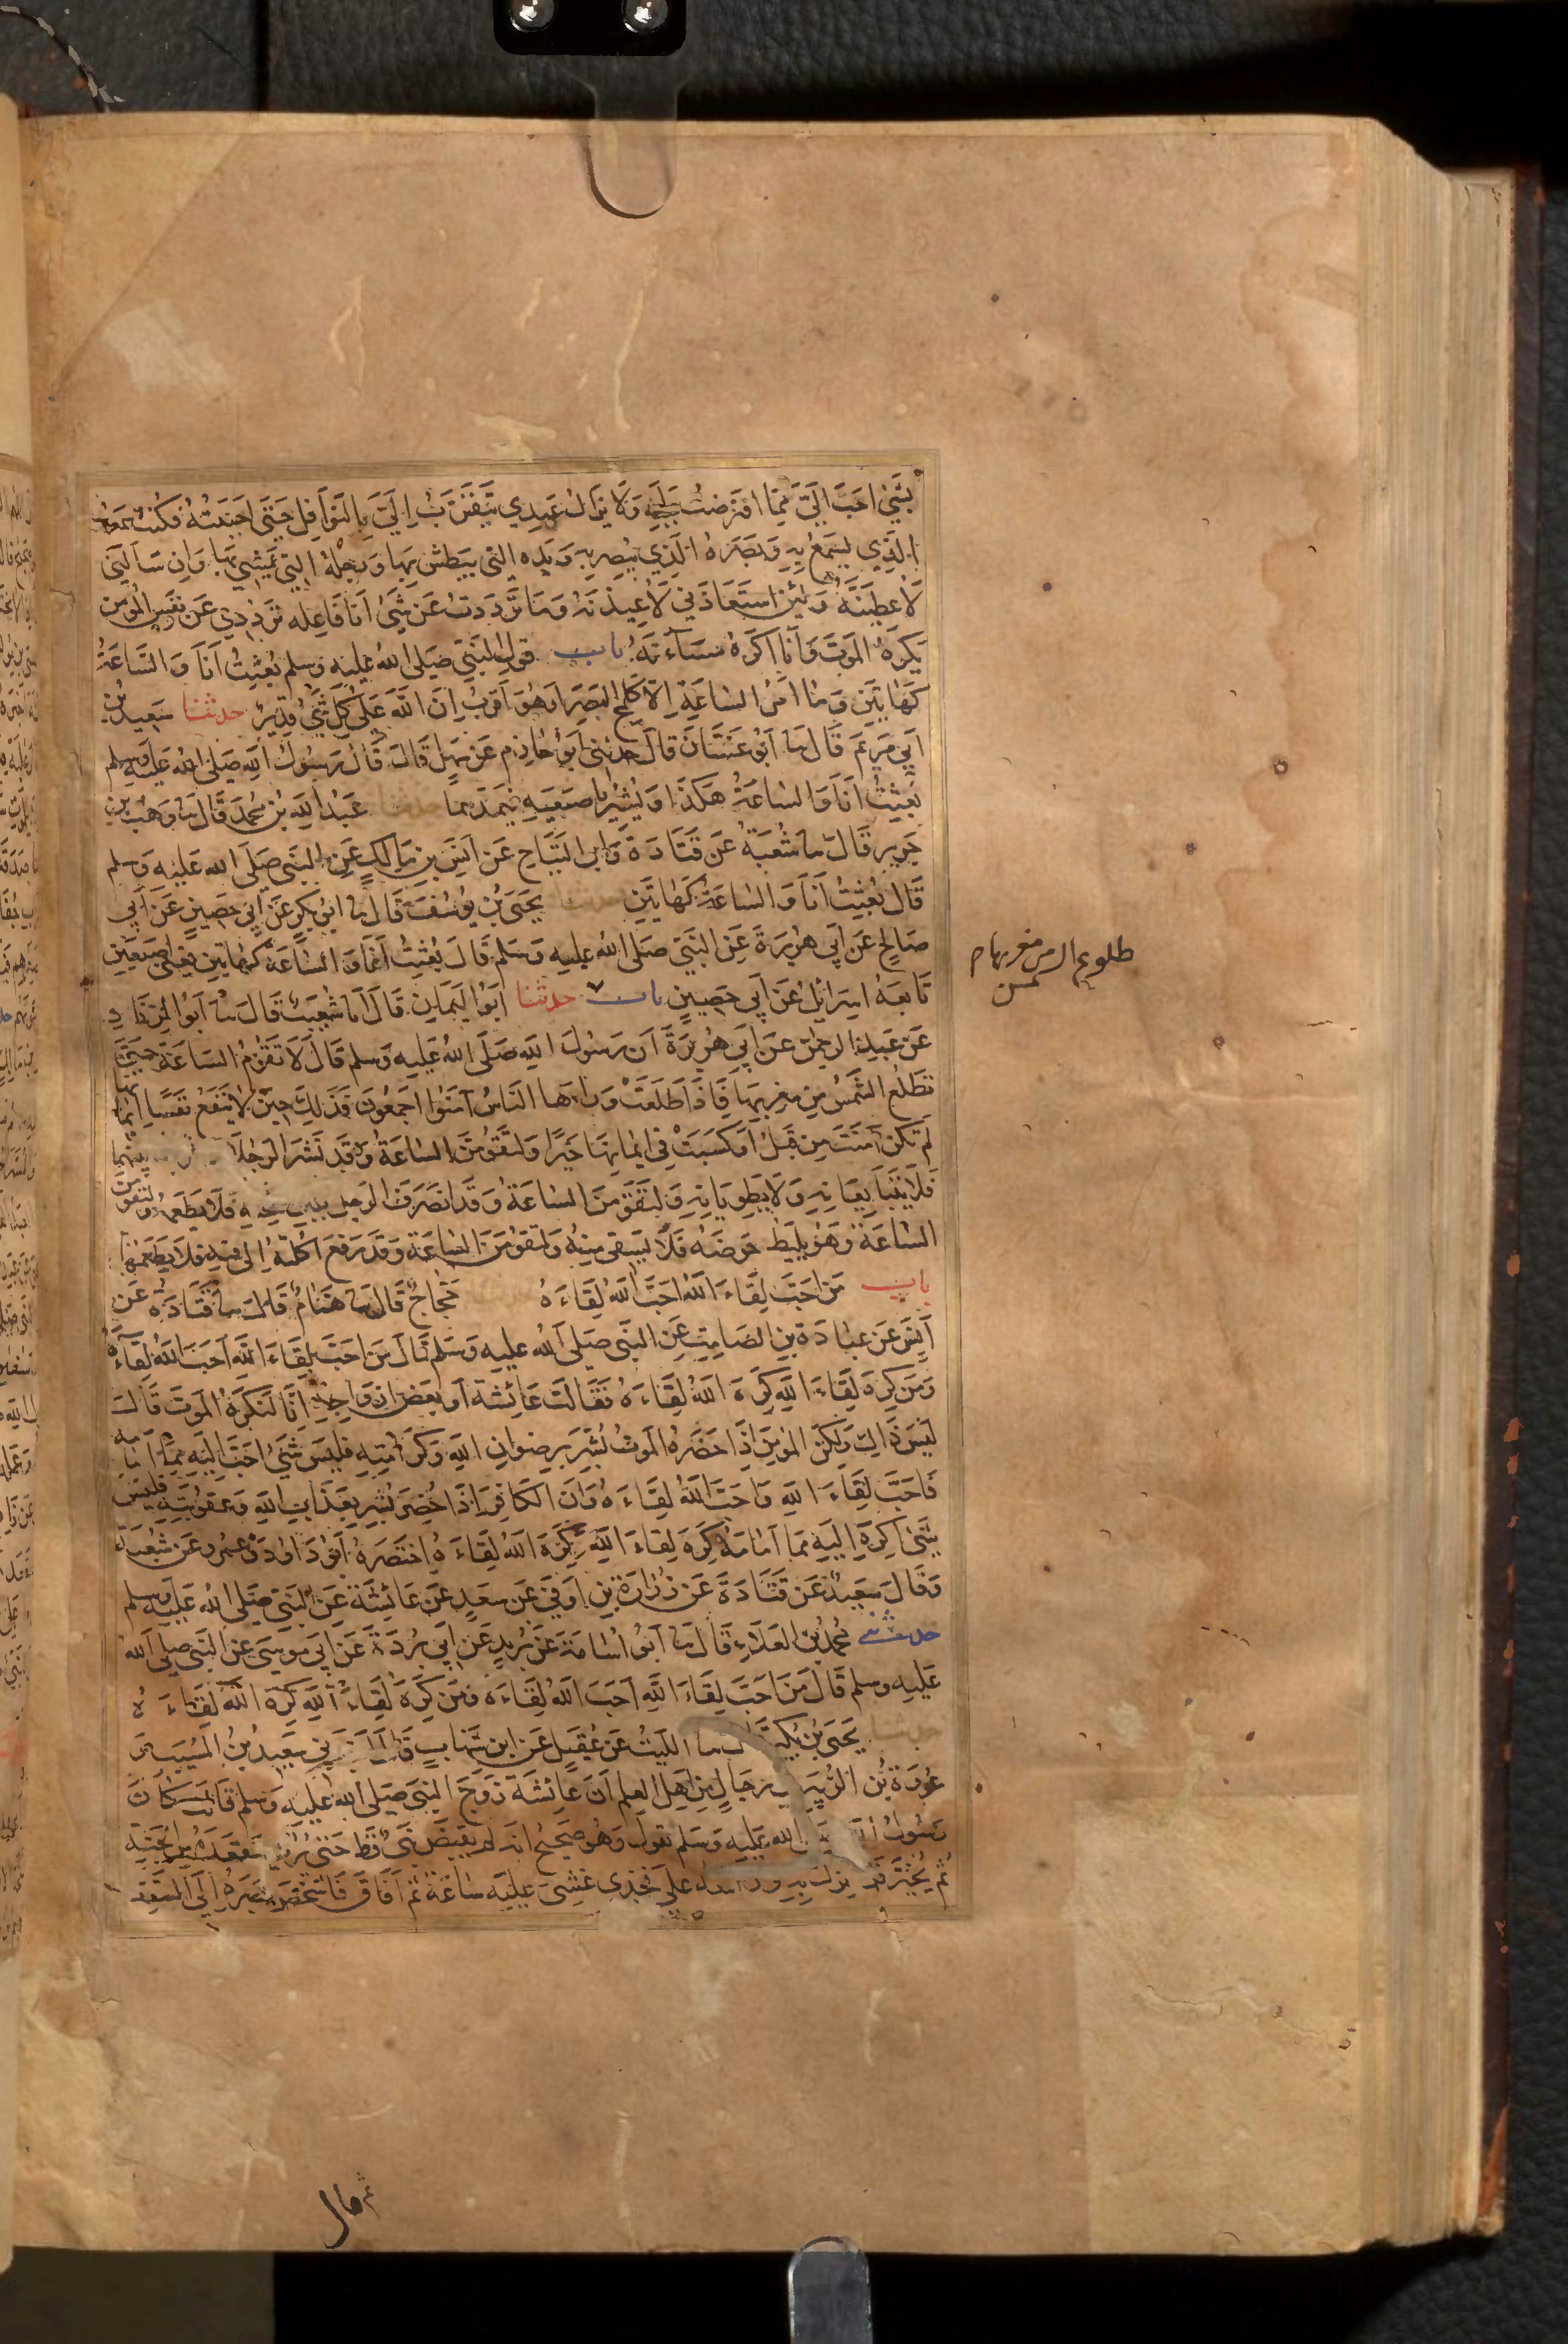 بِشَيْءٍ احَبَّ اِلَيَّ مِمَّا افْتَرَضْتُ عَلَيْهِ وَلَا يَزَالُ عَبدِي يَتَقَرَّبُ اِلَيَّ بِالنَّوَافِلِ حَتّى احْبَبْتُهُ فكُنْتُ سَمْعَهُ
الَّذِي يَسْمَعُ بِهِ وَبَصَرَهُ الَّذِي يُبْصِرُ بِهِ وَيَدَهُ التي يَبْطِشُ بِهَا وَرِجْلَهُ الَّتِي يَمْشِي بِهَا وَاِن سَاَلَنِي
لَأُعْطِيَنَّهُ وَلَئِنْ اسْتَعَاذَنِي لَأُعِيذَنَّهُ وَمَا تَرَدَّدْتُ عَنْ شَيْءٍ اَنَا فَاعِلُه تَرَدُّدِي عَنْ نَفْسِ المُؤْمِنِ
يَكْرَهُ الموْتَ وَأَنَا اَكْرَهُ مَسَآءَتَهُ باب قولِ النَّبِيِّ صَلَّى اللهُ عَلَيْهِ وَسلم بُعِثْتُ اَنَا وَالسَّاعَةُ
كَهَاتَيْنِ وَمَا اَمْرُ السَّاعَةِ اِلاَّ كَلَمْحِ البَصَرِ اَوْ هُوَ اَقْرَبُ اِنَّ اللّهَ عَلَى كُلِّ شَيْءٍ قَدِيرٌ حدثنا سَعِيدُ بْنُ
اَبِي مَرْيَمَ قَالَ نا اَبُو غَسَّانَ قالَ حدثنِي اَبُو حَازِمٍ عَنْ سَهْلٍ قَالَ قَالَ رَسُولُ اللهِ صَلَى اللهُ عَلَيْهِ وَسلم
بُعِثْتُ اَنَا وَالسَّاعَةُ هَكَذَا وَيُشِيْرُ بِاِصْبَعَيْهِ فَيَمُدُّهُمَا حدثنا عَبْدُ اللهِ بْنُ مُحَمَّدٍ قَالَ نا وَهْبُ بْنُ
جَرِيرٍ قَالَ نا شُعْبَةُ عَنْ قَتَادَةَ وَاَبِي التَّيَّاحِ عَنْ اَنَسِ بْنِ مَالِكٍ عَنِ النَّبِي صَلَى الله عَلَيْهِ وَسلم
قَالَ بُعِثْتُ اَنَا وَالسَّاعَةُ كَهَاتَيْنِ حدثنا يَحْيَى بْنُ يُوسُفَ قَالَ نا ابُو بَكْرٍ عَنْ اَبِي حَصِينٍ عَنْ اَبِي
صَالِحٍ عَنْ اَبِي هُرَيْرَةَ عَنِ النَّبِيِّ صَلى اللهُ عَلَيهِ وَسَلم قَالَ بُعِثْتُ اَنَا وَالسَّاعَةُ كَهَاتَيْنِ يَعْنِي اصْبَعَيْنِ
تَابَعَهُ اسْرَائِيلُ عَنْ اَبِي حَصِينٍ باب حدثنا اَبُو اليَمَانِ قَالَ اَنَا شُعَيْبٌ قَالَ نا اَبُو الزِّنَادِ
عَنْ عَبْدِ الرحمٰنِ عَنْ اَبِي هُرَيْرَةَ اَن رَسُولَ اللهِ صَلَّى اللهُ عَلَيْهِ وَسلم قَالَ لَا تَقُومُ السَّاعَةُ حَتَّى
تَطْلُعَ الشَّمْسُ مِنْ مَغْرِبِهَا فَاِذَا طَلَعَتْ وَرَاهَا النَّاسُ آمَنُوا اَجْمَعُونَ فَذَلِكَ حِينَ لَا يَنْفَعُ نَفْسًا اِيمَانُهَا
لَمْ تَكُنْ آمَنَتْ مِنْ قَبْلُ اَوْ كَسَبَتْ فِي اِيمَانِهَا خَيْرًا وَلَتَقُومَنَّ السَّاعَةُ وَقَدْ نَشَرَ الرَّجُلَا بينهما
فَلَا يَتَبَايَعَانِهِ وَلَا يَطْوِيَانِهِ وَلَتَقُومَنَّ السَّاعَةُ وَقَدِ انصَرَفَ الرَّجُل بلبن فَلَا يَطْعَمُهُ وَلَتَقُومَنَّ
السَّاعَةُ وَهُوَ يُلِيطُ حَوْضَهُ فَلَا يَسقِي مِنْهُ وَلتَقُومَنَّ السَّاعَة وَقَدْ رَفَعَ اُكْلَتَهُ اِلَى فِيهِ فَلَا يَطْعَمُهَا
باب مَنْ احَبَّ لِقَاءَ اللهِ احَبَّ اللهُ لِقَاءَهُ حَجَّاجٌ قَالَ نا هَمَّامٌ قَالَ نا قَتَادَةُ عَنْ
اَنَسٍ عَنْ عبَادَةَ بْنِ الصَّامِتِ عَنِ النَّبِي صَلَى اللهُ عَلَيهِ وَسَلم قَالَ مَنْ احَبَّ لِقَاءَ اللهِ اَحَبَّ اللهُ لِقَاءَهُ
وَمَنْ كَرِهَ لِقَاءَ اللهِ كَرِهَ اللهُ لِقَاءَهُ فَقَالَتْ عَائِشَةُ اَو بَعْضُ ازوَاجِهِ اِنَّا لَنَكْرَهُ الموْتَ قَالَ
لَيْسَ ذَاكِ وَلَكِنَّ المؤمِنَ اِذَا حَضَرَهُ الموْتُ بُشِّرَ بِرِضْوَانِ اللهِ وَكَرَامَتِهِ فَلَيْسَ شَيْءٌ احَبَّ اِلَيْهِ مِمَّا اَمَامَهُ
فَاحَبَّ لِقَاءَ اللهِ وَاحَبَّ اللهُ لِقَاءَهُ وَاِنَّ الكَافِرَ اِذَا حُضِرَ بُشِّرَ بِعَذَابِ اللهِ وَعقُوبَتِهِ فَلَيْسَ
شَيْءٌ اكْرَهَ اِلَيْهِ مِمَّا اَمَامَهُ كَرِهَ لِقَاءَ اللهِ وَكَرِهَ اللهُ لِقَاءَهُ اخْتَصَرَهُ اَبُو دَاوُدَ وَعَمْرو عَنْ شُعْبَةَ
وَقَالَ سَعِيدٌ عَنْ قَتَادَةَ عَنْ زُرَارَةَ بْنِ اَوْفَى عَنْ سَعْدٍ عَنْ عَائِشَةَ عَنِ النَّبِي صَلَى اللهُ عَلَيْهِ وَسلم
حدثني مُحَمَّدُ بْنُ العَلَاءِ قَالَ نا اَبُو اُسَامَةَ عَنْ بُرَيْدٍ عَنْ اَبِي بُرْدَةَ عَنْ اَبِي مُوسَى عَنِ النَّبِي صَلَى اللهُ
عَلَيْهِ وسلم قَالَ مَنْ احَبَّ لِقَاءَ اللهِ اَحَبَّ اللهُ لِقَاءَهُ وَمَنْ كَرِهَ لِقَاءَ اللهِ كَرِهَ اللهُ لِقَاءَهُ
حدثنا يَحْيَى بْنُ بُكَيْرٍ نا اللَّيْثُ عَنْ عُقَيْلٍ عَنِ ابنِ شِهَابٍ قَالَ سَعِيدُ بْنُ المُسَيِّبِ وَ
عُرْوَةُ بْنُ الزُّبَيْرِ رِجَالٍ مِنْ اَهْلِ العِلمِ اَنَّ عَائِشَةَ زَوْجَ النَّبِي صَلَى اللهُ عَلَيْهِ وَسلم قَالَتْ كَانَ
رَسُولُ اللهُ عَلَيهِ وَسَلم يقُولُ وَهُوَ صَحِيحٌ اِنَّهُ لَم يُقبَضْ نَبِيٌّ قَطُّ حَتَّى يُرَى مَقْعَدَهُ مِنَ الجَنَّةِ
ثُمَّ يُخَيَّرَ نَزَلَ بِهِ عَلَى فَخِذِي غُشِيَ عَلَيْهِ سَاعَةً ثُمَّ اَفَاقَ فَاَشْخَصَ بَصَرَهُ اِلَى السَّقْفِ
طلوع الشمس من مغربها
ثم قال